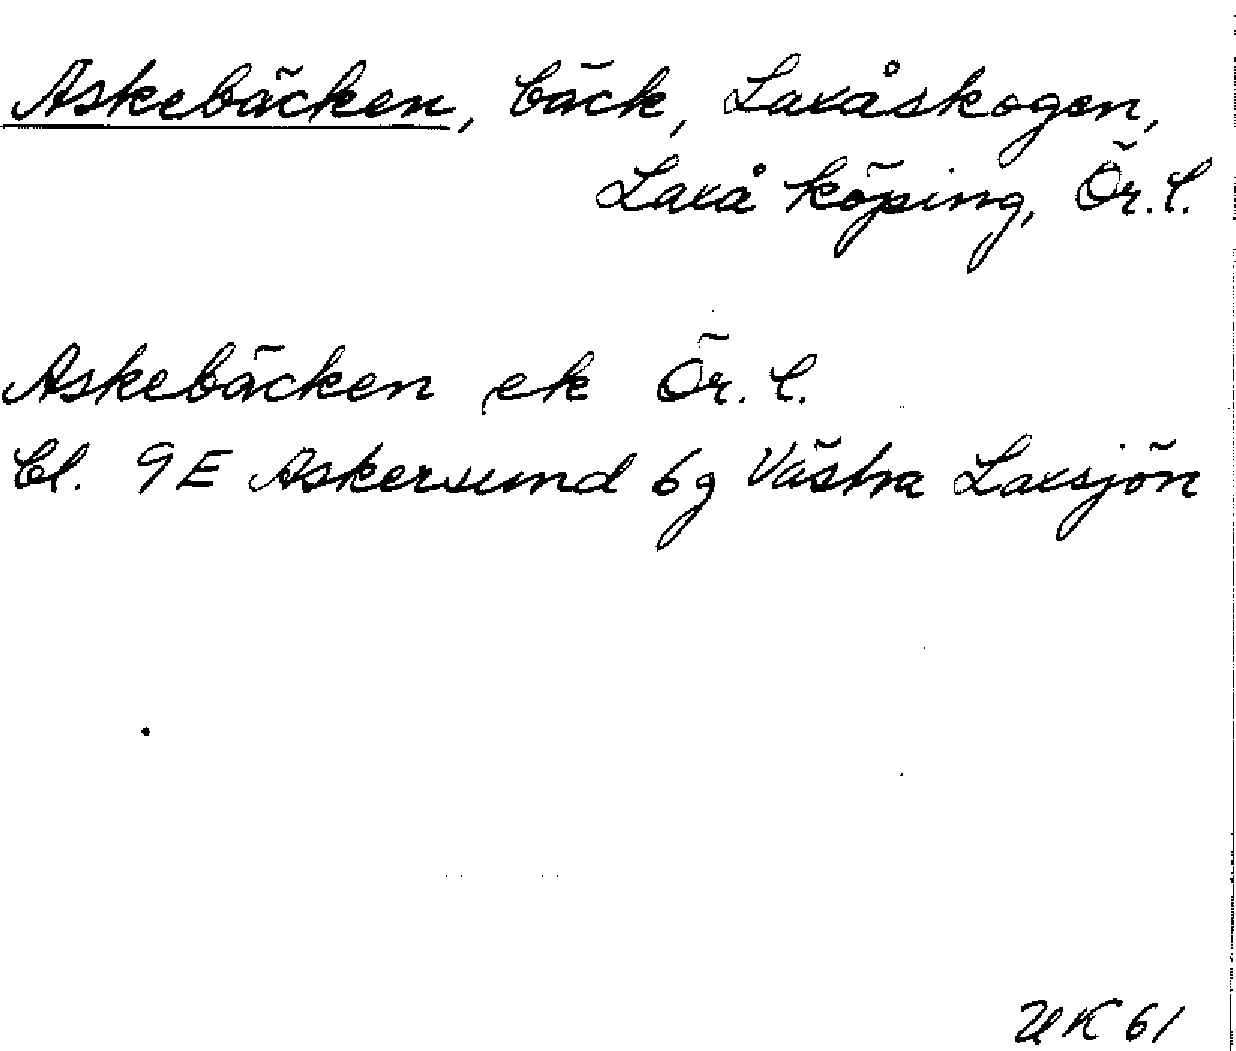 Askebäcken, bäck, Laxåskogen,
Laxå köping, Ör.l.
Askebäcken ek Ör.l.
Bl. 9E Askersund 6g Västra Laxsjön
UK 61